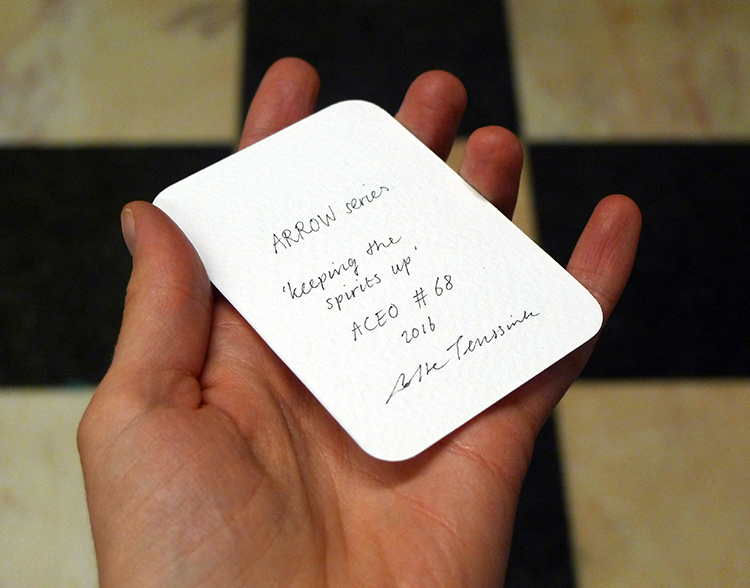 ARROW series
'keeping the
spirits up'
ACEO # 68
2016